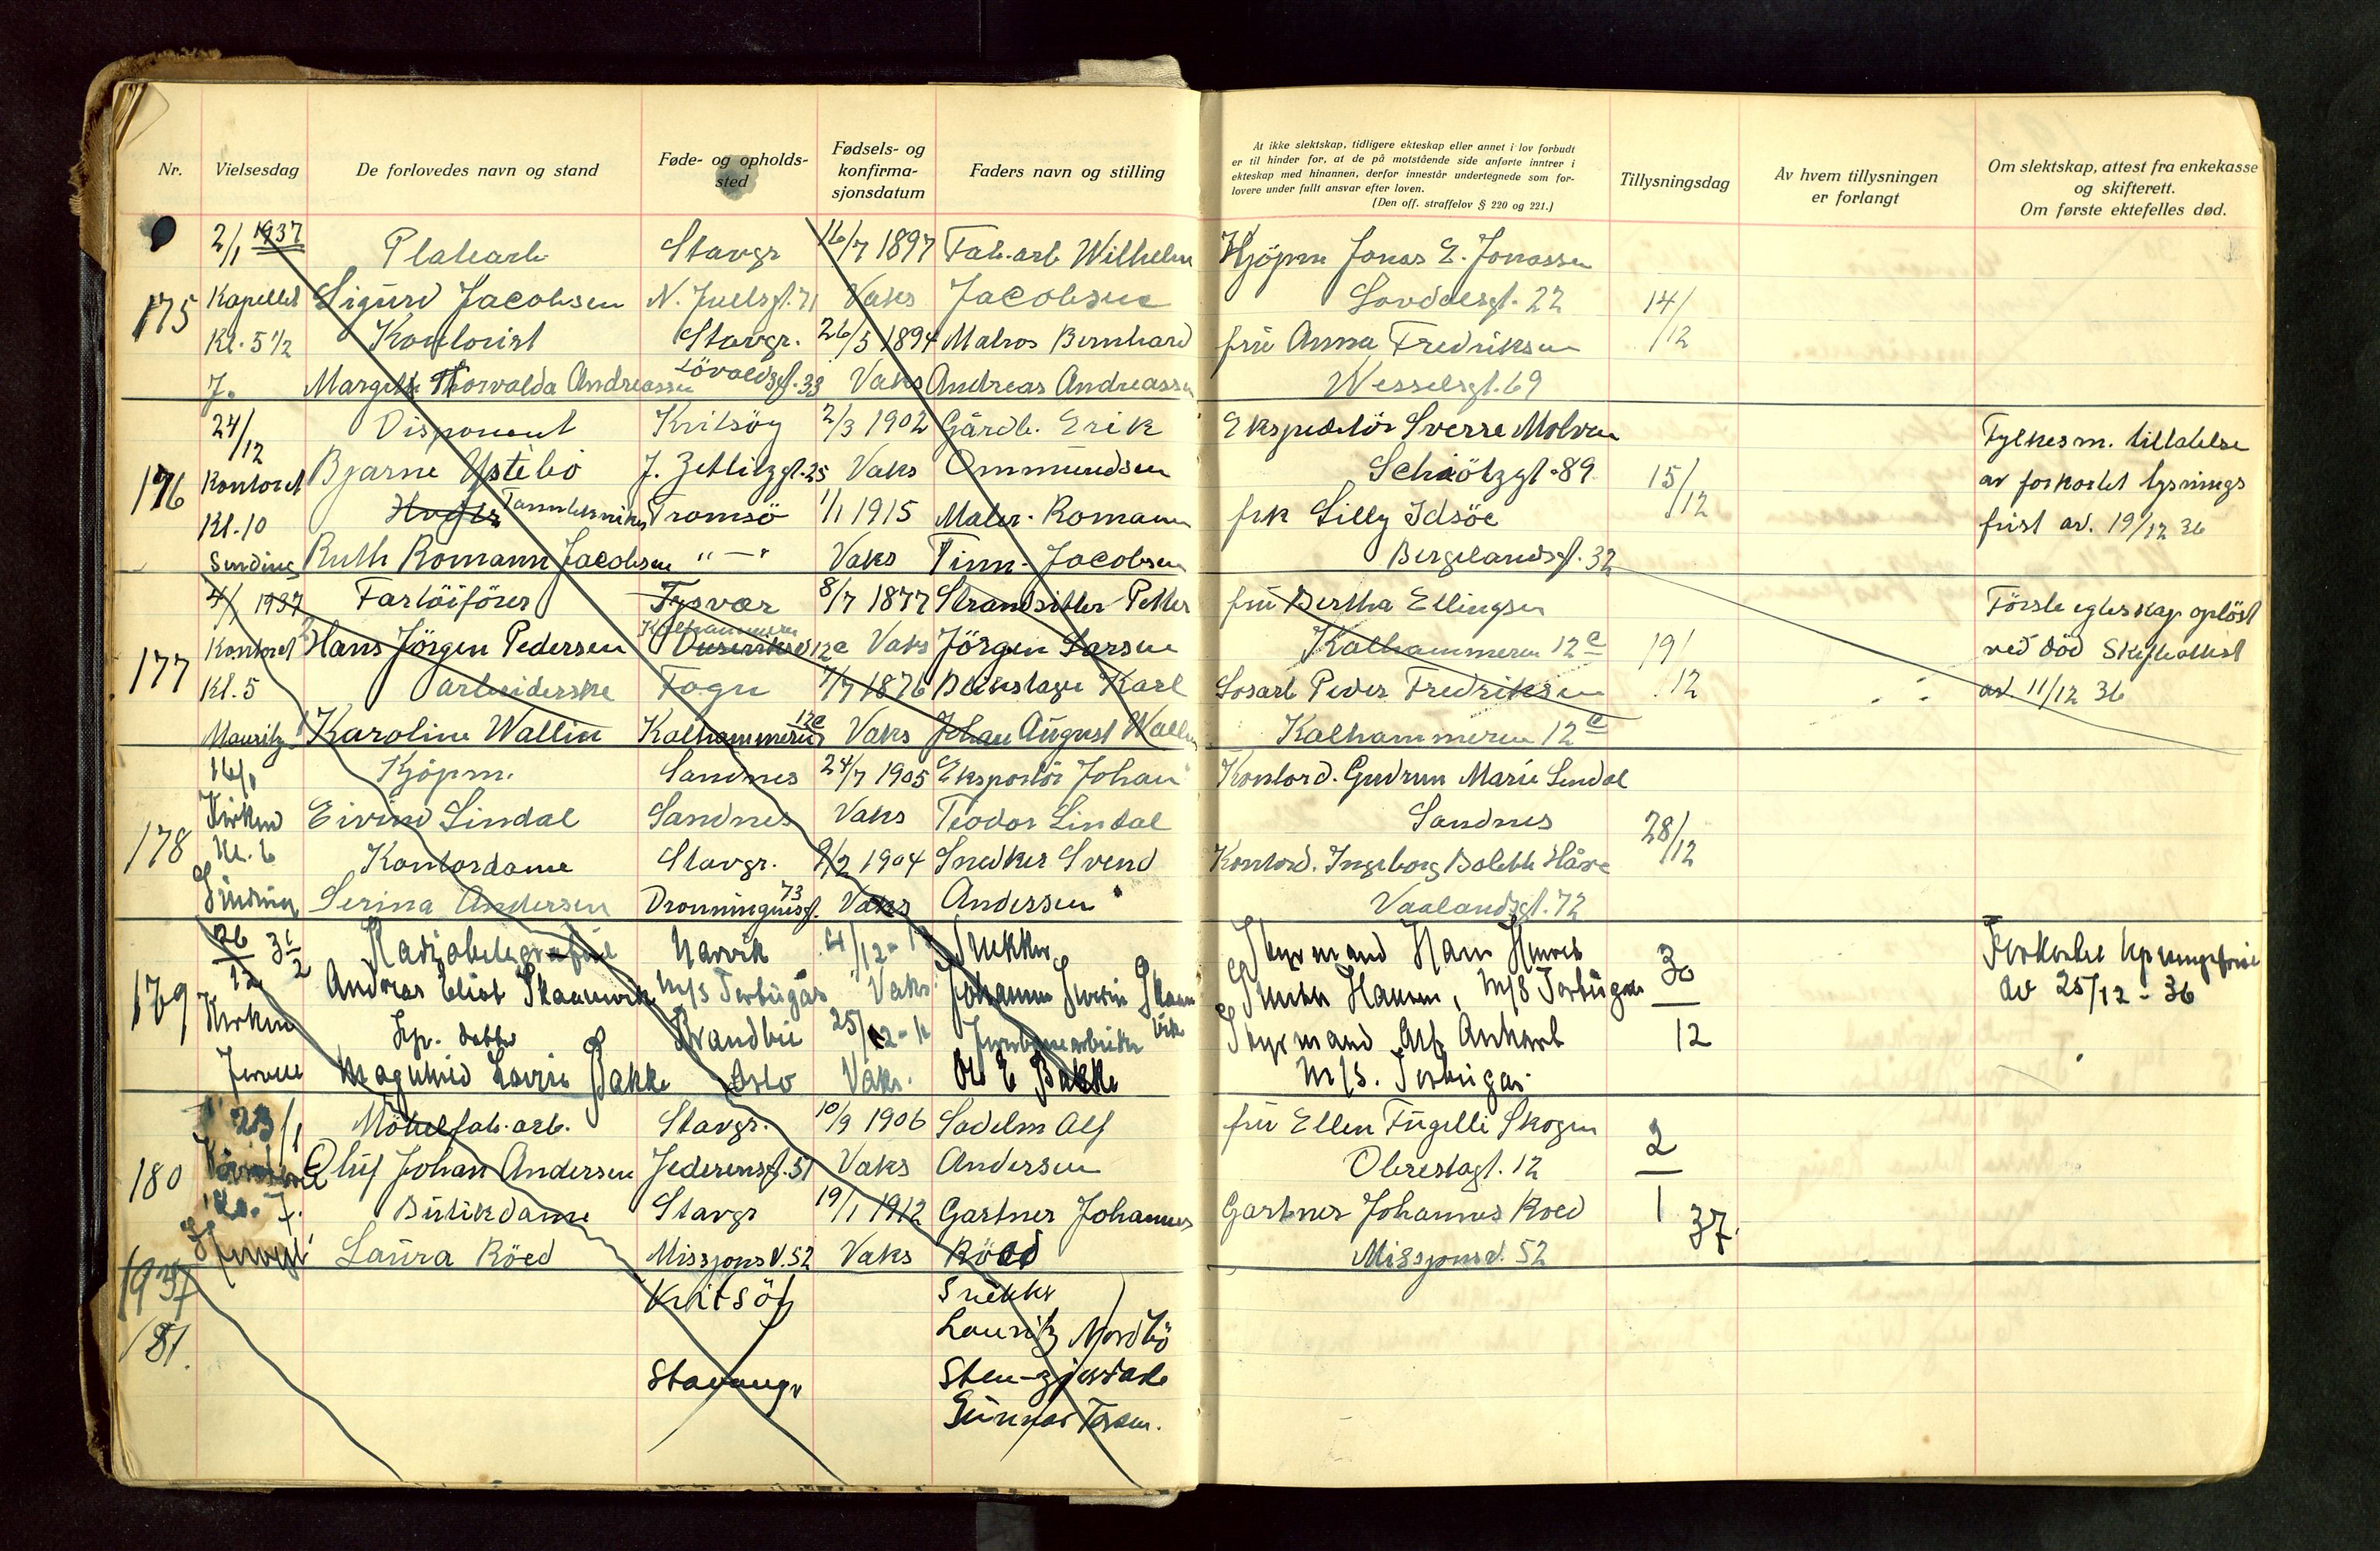 Nr.
Vielsesdag
De forlovedes navn og stand
Føde- og opholds-
sted
Fødsels- og
konfirma-
sjonsdatum
Faders navn og stilling
At ikke slektskap, tidligere ekteskap eller annet i lov forbudt
er til hinder for, at de på motstående side anførte inntrer i
ekteskap med hinannen, derfor innestår undertegnede som for-
lovere under fullt ansvar efter loven.
(Den off. straffelov § 220 og 221.)
Tillysningsdag
Av hvem tillysningen
er forlangt
Om slektskap, attest fra enkekasse
og skifterett.
Om første ektefelles død.
175
2/1 1937
Kapellet
Kl. 5 1/2
J.
Platearb
Sigurd Jacobsen
Kontorist
Thorvalda Andreassen
Stavgr
N. Juelsgt. 71
Stavgr.
Lövoldsgt. 33
16/7 1897
Vaks
26/5 1894
Vaks
Fab. arb Wilhelm
Jacobsen
Matros Bernhard
Andreas Andreassen
Kjöpm Jonas E. Jonassen
Lovdalsgt. 22
fru Anna Fredriksen
Wesselsgt. 69
14/
/12
176
24/
/12
Kontoret
Kl. 10
Sinding
Disponent
Bjarne Ystebö
Tanntekniker
Ruth Romann Jacobsen
Kvitsöy
J. Zetlitzgt. 25
Tromsö
" — "
2/3 1902
Vaks
1/1 1915
Vaks
Gårdb. Erik
Ommundsen
Maler. Romann
Finn Jacobsen
Ekspeditör Sverre Molven
Schiötzgt. 89
frk Lilly Idsöe
Bergelandsgt. 32
15/
/12
Fylkesm. tillatelse
av forkortet lysnings
frist av. 19/12 36
177
4/1 1937
Kontoret
Kl. 5
Mauritz
Fartöiförer
Hans Jörgen Pedersen
arbeiderske
Karoline Wallin
Tysvær
Kalhammeren
12c
Fogn
Kalhammeren 12c
8/7 1877
Vaks
7/7 1876
Vaks
Strandsitter Petter
Jörgen Larsen
Karl
Johan August Wallin
fru Bertha Ellingsen
Kalhammeren 12c
Losarb Peder Fredriksen
Kalhammeren 12c
19/
12
Förste egteskap oplöst
ved död Skifteattest
av 11/12 36
178
16/1
Kirken
Kl. 6
Sinding
Kjöpm.
Eivind Lindal
Kontordame
Serina Andersen
Sandnes
Sandnes
Stavgr.
Dronningensgt. 73
24/7 1905
Vaks
9/2 1904
Vaks
Eksportör Johan
Teodor Lindal
Snedker Svend
Andersen
Kontord. Gudrun Marie Lindal
Sandnes
Kontord. Ingeborg Bolette Håve
Vaalandsgt. 72
28/
/12
179
26
12
3 1/2
Kirken
Radiotelegrafist
Andreas Eliot Skaanvik
Bakke
Narvik
M/S Torbugas
Brandbu
Oslo
4/12 - 1
Vaks
25/12 - 11
Vaks.
Snekker
Johannes
Jernbanearbeider
Ole E Bakke
Styrmand
M/S Torbugas
Styrmand Alf
M/S. Torbugas
30
12
Forkortet lysningsfrist
av 25/12 - 36
180
23/1
Kl. 7.
Möbelfab. arb.
Oluf Johan Andersen
Butikdame
Laura Röed
Stavgr.
Jederensgt. 51
Stavgr
Missjonsv. 52
10/9 1906
Vaks
19/1 1912
Vaks
Sadelm Alf
Andersen
Gartner Johannes
Röed
fru Ellen Fugelli Skogen
Obrestagt. 12
Gartner Johannes Roed
Missjonsv. 52
2
1 37.
1937
181.
Kvitsöy
Stavanger
Snekker
Lauritz Nordbö
Sten-
Gunnar